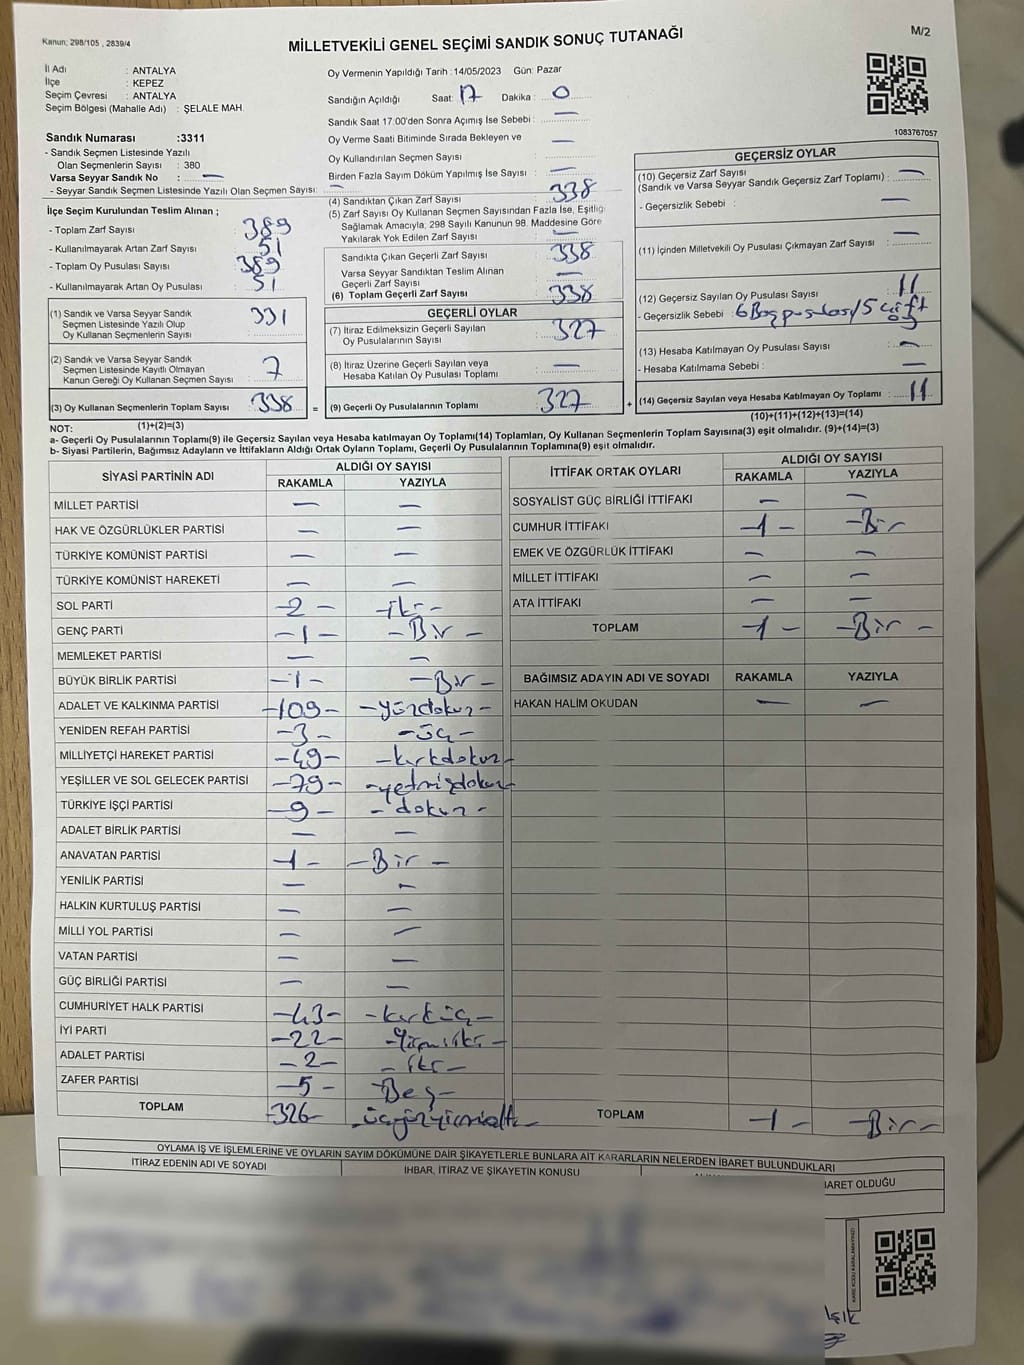 Kanun; 298/105 , 2839/4
M/2
MİLLETVEKİLİ GENEL SEÇİMİ SANDIK SONUÇ TUTANAĞI
İl Adı : ANTALYA
İlçe : KEPEZ
Seçim Çevresi : ANTALYA
Seçim Bölgesi (Mahalle Adı) : ŞELALE MAH.
Sandık Numarası :3311
- Sandık Seçmen Listesinde Yazılı
Olan Seçmenlerin Sayısı : 380
Varsa Seyyar Sandık No : —
- Seyyar Sandık Seçmen Listesinde Yazılı Olan Seçmen Sayısı: —
Oy Vermenin Yapıldığı Tarih :14/05/2023 Gün: Pazar
Sandığın Açıldığı Saat: 17 Dakika : 0
Sandık Saat 17:00'den Sonra Açılmış İse Sebebi : —
Oy Verme Saati Bitiminde Sırada Bekleyen ve
Oy Kullandırılan Seçmen Sayısı : —
Birden Fazla Sayım Döküm Yapılmış İse Sayısı : —
1083767057
İlçe Seçim Kurulundan Teslim Alınan ;
- Toplam Zarf Sayısı : 389
- Kullanılmayarak Artan Zarf Sayısı : 51
- Toplam Oy Pusulası Sayısı : 389
- Kullanılmayarak Artan Oy Pusulası : 51
(1) Sandık ve Varsa Seyyar Sandık
Seçmen Listesinde Yazılı Olup
Oy Kullanan Seçmenlerin Sayısı : 331
(2) Sandık ve Varsa Seyyar Sandık
Seçmen Listesinde Kayıtlı Olmayan
Kanun Gereği Oy Kullanan Seçmen Sayısı : 7
(3) Oy Kullanan Seçmenlerin Toplam Sayısı : 338 =
(1)+(2)=(3)
(4) Sandıktan Çıkan Zarf Sayısı : 338
(5) Zarf Sayısı Oy Kullanan Seçmen Sayısından Fazla İse, Eşitliği
Sağlamak Amacıyla, 298 Sayılı Kanunun 98. Maddesine Göre
Yakılarak Yok Edilen Zarf Sayısı : —
Sandıkta Çıkan Geçerli Zarf Sayısı : 338
Varsa Seyyar Sandıktan Teslim Alınan
Geçerli Zarf Sayısı : —
(6) Toplam Geçerli Zarf Sayısı : 338
GEÇERLİ OYLAR
(7) İtiraz Edilmeksizin Geçerli Sayılan
Oy Pusulalarının Sayısı : 327
(8) İtiraz Üzerine Geçerli Sayılan veya
Hesaba Katılan Oy Pusulası Toplamı : —
(9) Geçerli Oy Pusulalarının Toplamı : 327 +
GEÇERSİZ OYLAR
(10) Geçersiz Zarf Sayısı
(Sandık ve Varsa Seyyar Sandık Geçersiz Zarf Toplamı) : —
- Geçersizlik Sebebi : —
(11) İçinden Milletvekili Oy Pusulası Çıkmayan Zarf Sayısı : —
(12) Geçersiz Sayılan Oy Pusulası Sayısı : 11
- Geçersizlik Sebebi : 6 Boş pusulası/5 çift oy
(13) Hesaba Katılmayan Oy Pusulası Sayısı : —
- Hesaba Katılmama Sebebi : —
(14) Geçersiz Sayılan veya Hesaba Katılmayan Oy Toplamı : 11
(10)+(11)+(12)+(13)=(14)
NOT:
a- Geçerli Oy Pusulalarının Toplamı(9) ile Geçersiz Sayılan veya Hesaba katılmayan Oy Toplamı(14) Toplamları, Oy Kullanan Seçmenlerin Toplam Sayısına(3) eşit olmalıdır. (9)+(14)=(3)
b- Siyasi Partilerin, Bağımsız Adayların ve İttifakların Aldığı Ortak Oyların Toplamı, Geçerli Oy Pusulalarının Toplamına(9) eşit olmalıdır.
SİYASİ PARTİNİN ADI ALDIĞI OY SAYISI
RAKAMLA YAZIYLA
MİLLET PARTİSİ — —
HAK VE ÖZGÜRLÜKLER PARTİSİ — —
TÜRKİYE KOMÜNİST PARTİSİ — —
TÜRKİYE KOMÜNİST HAREKETİ — —
SOL PARTİ -2- -iki-
GENÇ PARTİ -1- -Bir-
MEMLEKET PARTİSİ — —
BÜYÜK BİRLİK PARTİSİ -1- -Bir-
ADALET VE KALKINMA PARTİSİ -109- -yüzdokuz-
YENİDEN REFAH PARTİSİ -3- -üç-
MİLLİYETÇİ HAREKET PARTİSİ -49- -kırkdokuz-
YEŞİLLER VE SOL GELECEK PARTİSİ -79- -yetmişdokuz-
TÜRKİYE İŞÇİ PARTİSİ -9- -dokuz-
ADALET BİRLİK PARTİSİ — —
ANAVATAN PARTİSİ -1- -Bir-
YENİLİK PARTİSİ — —
HALKIN KURTULUŞ PARTİSİ — —
MİLLİ YOL PARTİSİ — —
VATAN PARTİSİ — —
GÜÇ BİRLİĞİ PARTİSİ — —
CUMHURİYET HALK PARTİSİ -43- -kırküç-
İYİ PARTİ -22- -Yirmiiki-
ADALET PARTİSİ -2- -iki-
ZAFER PARTİSİ -5- -Beş-
TOPLAM -326- -üçyüzyirmialtı-
İTTİFAK ORTAK OYLARI ALDIĞI OY SAYISI
RAKAMLA YAZIYLA
SOSYALİST GÜÇ BİRLİĞİ İTTİFAKI — —
CUMHUR İTTİFAKI -1- -Bir-
EMEK VE ÖZGÜRLÜK İTTİFAKI — —
MİLLET İTTİFAKI — —
ATA İTTİFAKI — —
TOPLAM -1- -Bir-
BAĞIMSIZ ADAYIN ADI VE SOYADI RAKAMLA YAZIYLA
HAKAN HALİM OKUDAN — —
TOPLAM -1- -Bir-
OYLAMA İŞ VE İŞLEMLERİNE VE OYLARIN SAYIM DÖKÜMÜNE DAİR ŞİKAYETLERLE BUNLARA AİT KARARLARIN NELERDEN İBARET BULUNDUKLARI
İTİRAZ EDENİN ADI VE SOYADI İHBAR, İTİRAZ VE ŞİKAYETİN KONUSU
İBARET OLDUĞU
KARE KODU KARALAMAYINIZ!